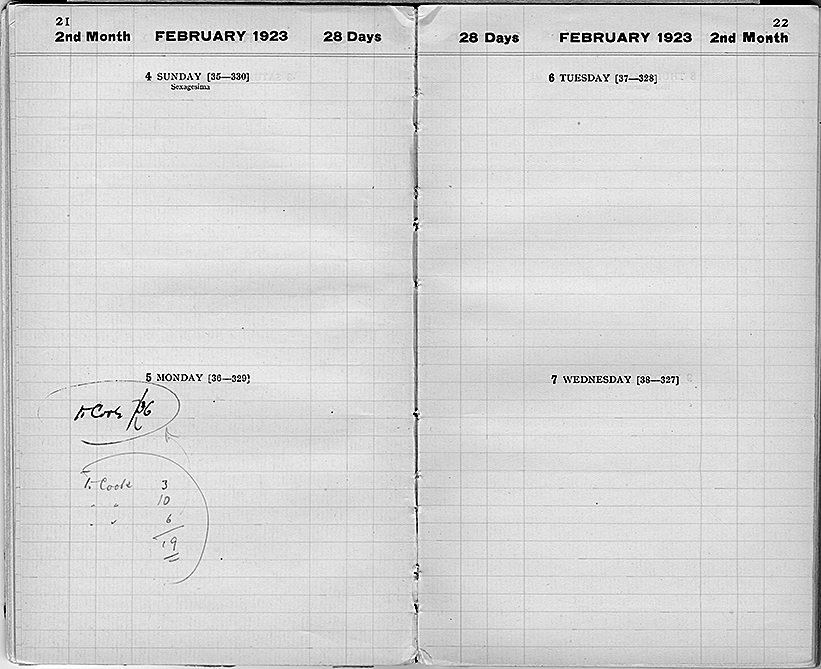 21
2nd Month FEBRUARY 1923 28 Days
4 SUNDAY [35—330]
Sexagesima
5 MONDAY [36—329]
Cook 3
" " 10
" " 6
19
22
28 Days FEBRUARY 1923 2nd Month
6 TUESDAY [37—328]
7 WEDNESDAY [38—327]